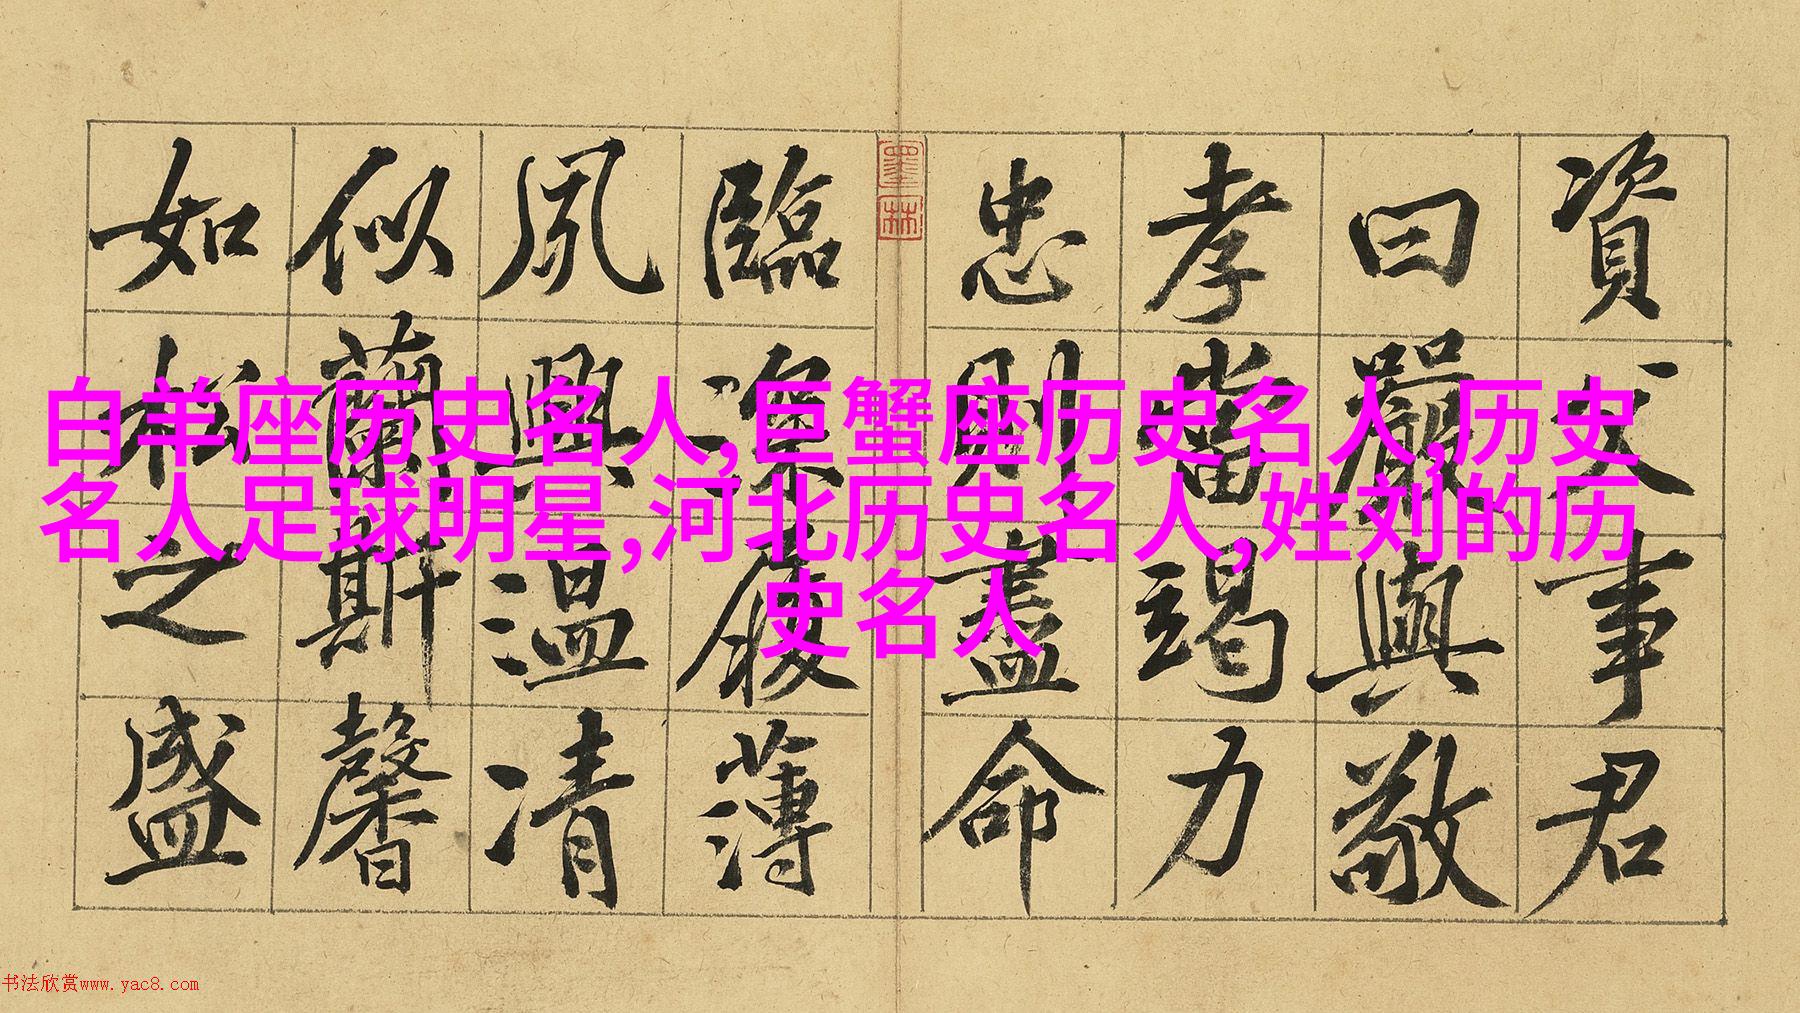 資父事君
曰嚴與敬
孝當竭力
忠則盡命
臨深履薄
夙興溫凊
似蘭斯馨
如松之盛
墨林
白羊座历史名人,巨蟹座历史名人,历史
名人足球明星,河北历史名人,姓刘的历
史名人
书法欣赏www.yac8.com